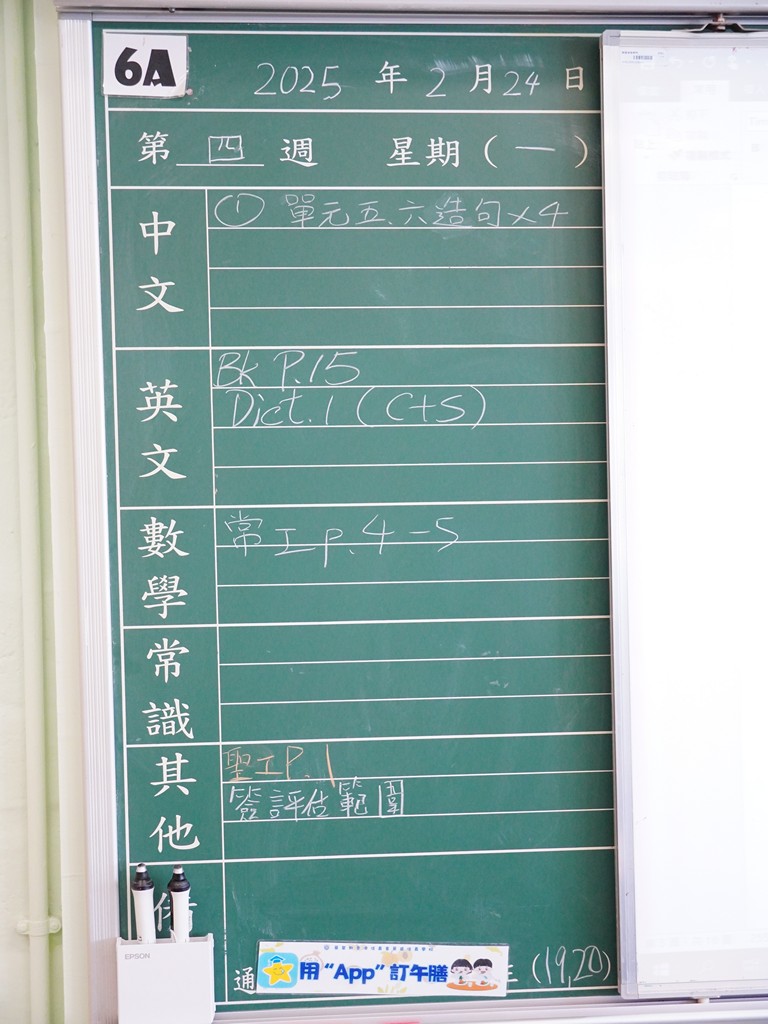 6A
2025 年 2 月 24 日
第 四 週 星期 ( 一 )
中文
① 單元五、六造句×4
英文
Bk P.15
Dict. 1 (C+S)
數學
常工 p. 4-5
常識
其他
聖工 P. 1
簽評估範圍
EPSON
通
用“App”訂午膳
(19,20)